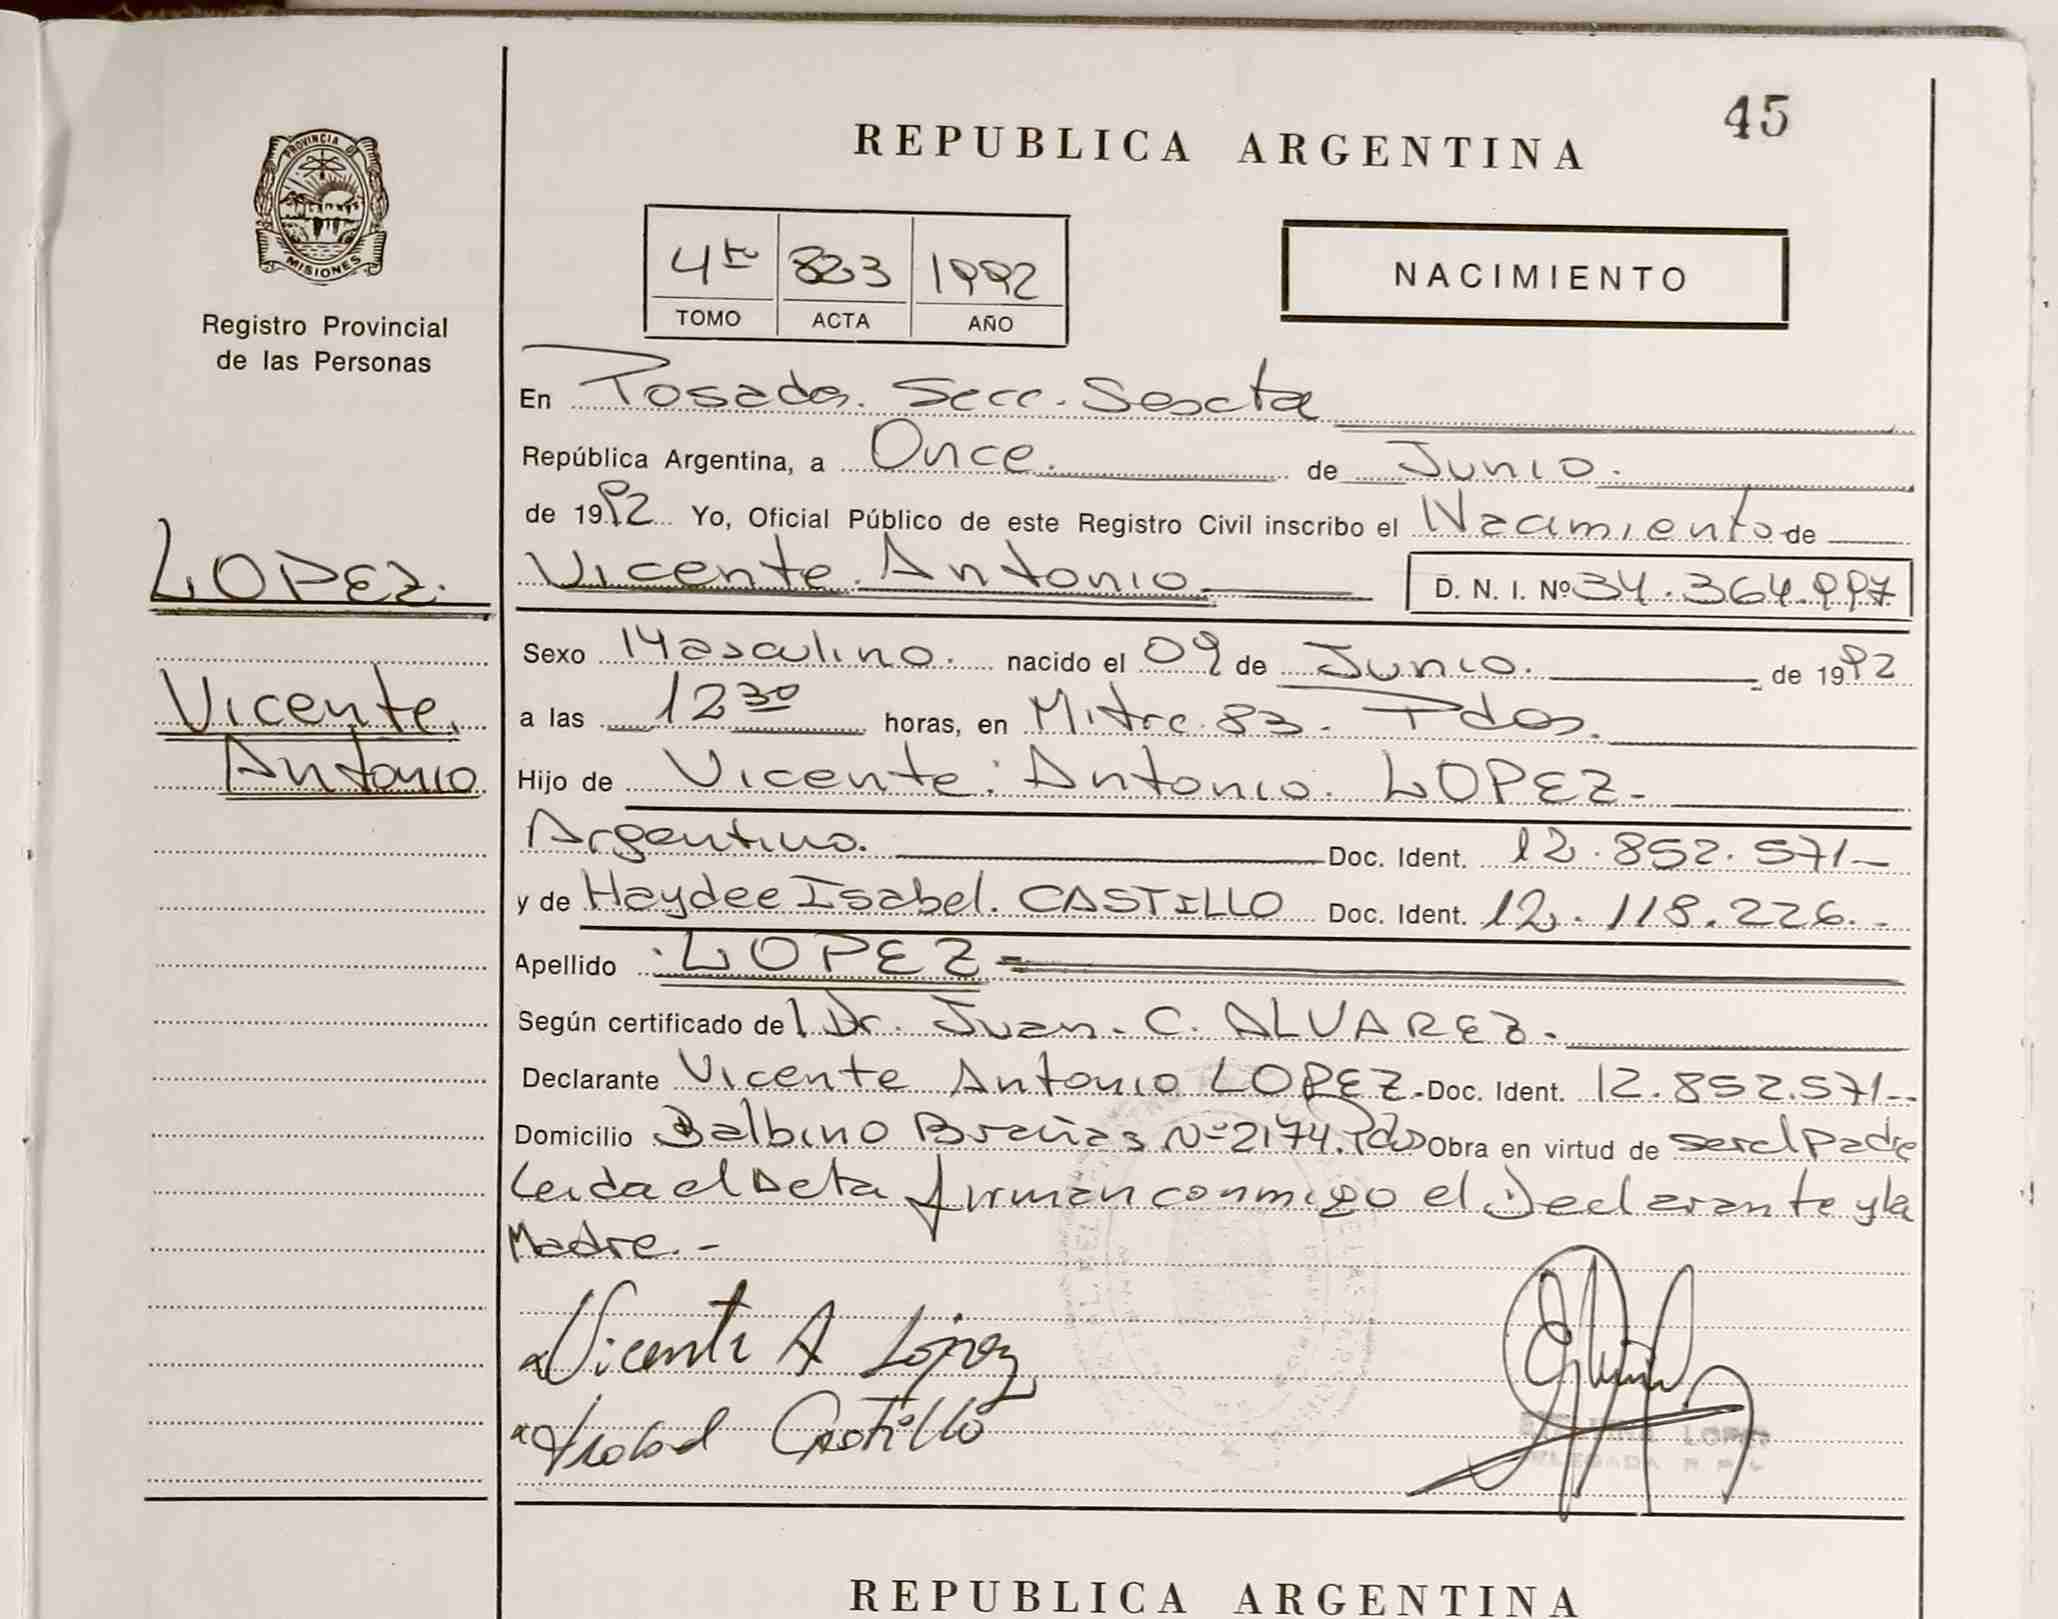 45
REPUBLICA ARGENTINA
PROVINCIA DE
MISIONES
Registro Provincial
de las Personas
4to 823 1992
TOMO ACTA AÑO
NACIMIENTO
En Posadas. Secc. Sexcta
República Argentina, a Once. de Junio.
de 1992 Yo, Oficial Público de este Registro Civil inscribo el Nacimiento de
LOPEZ.
Vicente Antonio D. N. I. Nº 34.364.997
Sexo Masculino. nacido el 09 de Junio. de 1992
Vicente
a las 12 30 horas, en Mitre 83. Pdas.
Antonio
Hijo de Vicente Antonio LOPEZ-
Argentino. Doc. Ident. 12.852.571-
y de Haydee Isabel. CASTILLO Doc. Ident. 12.118.226.-
Apellido LOPEZ
Según certificado de l Dr. Juan. C. ALVAREZ.
Declarante Vicente Antonio LOPEZ. Doc. Ident. 12.852.571-
Domicilio Balbino Brañas Nº 2174. Pdas Obra en virtud de ser el Padre
Leida el Acta firman conmigo el Declarante y la
Madre.-
Vicente A López
Isabel Castillo
LOPEZ
DELEGADA
REPUBLICA ARGENTINA